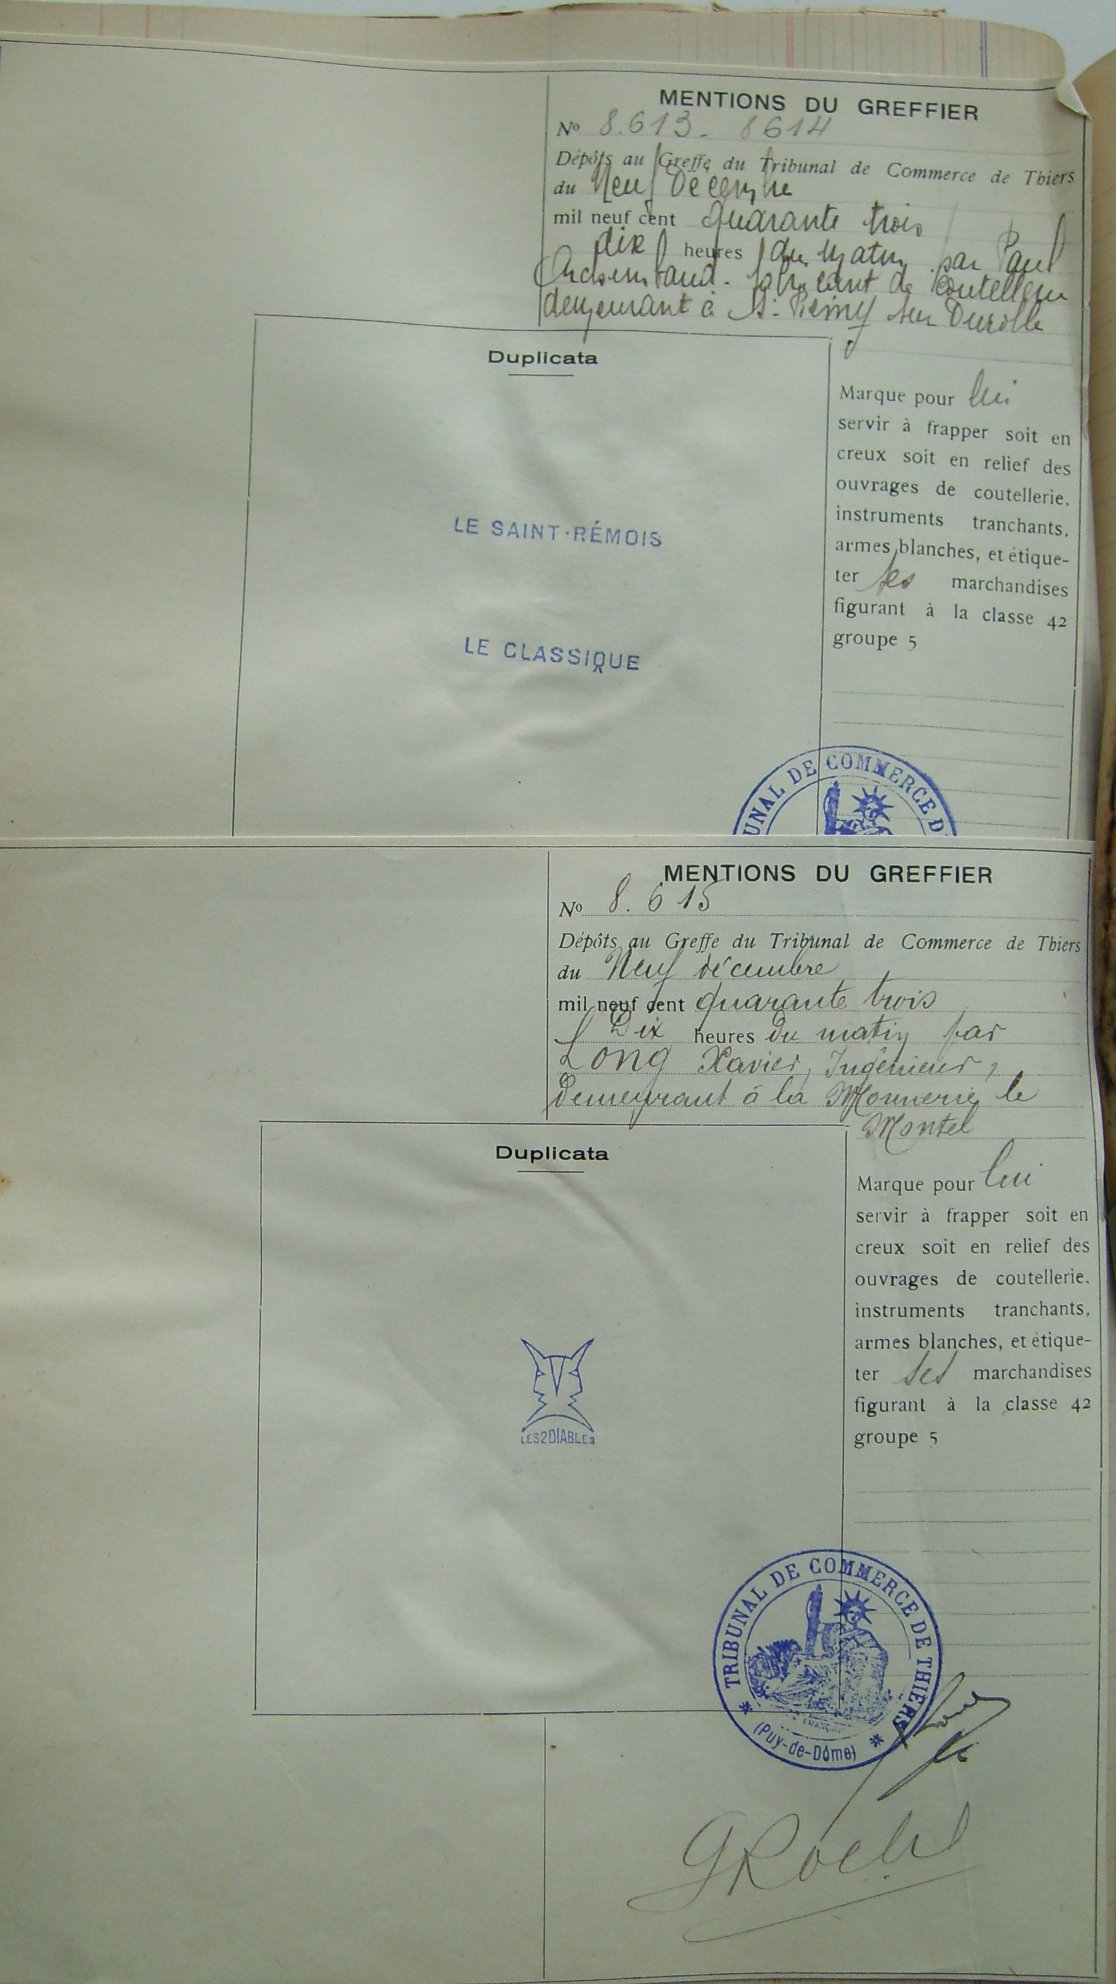 MENTIONS DU GREFFIER
No 8.613 - 8614
Dépôts au Greffe du Tribunal de Commerce de Thiers
du Neuf Décembre
mil neuf cent quarante trois
dix heures du matin par Paul
fabricant de Coutellerie
demeurant à St Rémy sur Durolle
Duplicata
LE SAINT-RÉMOIS
LE CLASSIQUE
Marque pour lui
servir à frapper soit en
creux soit en relief des
ouvrages de coutellerie,
instruments tranchants,
armes blanches, et étique-
ter ses marchandises
figurant à la classe 42
groupe 5
UNAL DE COMMERCE D
MENTIONS DU GREFFIER
No 8.615
Dépôts au Greffe du Tribunal de Commerce de Thiers
du Neuf décembre
mil neuf cent quarante trois
Dix heures du matin par
Long Xavier, Ingénieur,
demeurant à la Monnerie le
Montel
Duplicata
LES 2 DIABLES
Marque pour lui
servir à frapper soit en
creux soit en relief des
ouvrages de coutellerie,
instruments tranchants,
armes blanches, et étique-
ter ses marchandises
figurant à la classe 42
groupe 5
TRIBUNAL DE COMMERCE DE THIERS
(Puy-de-Dôme)